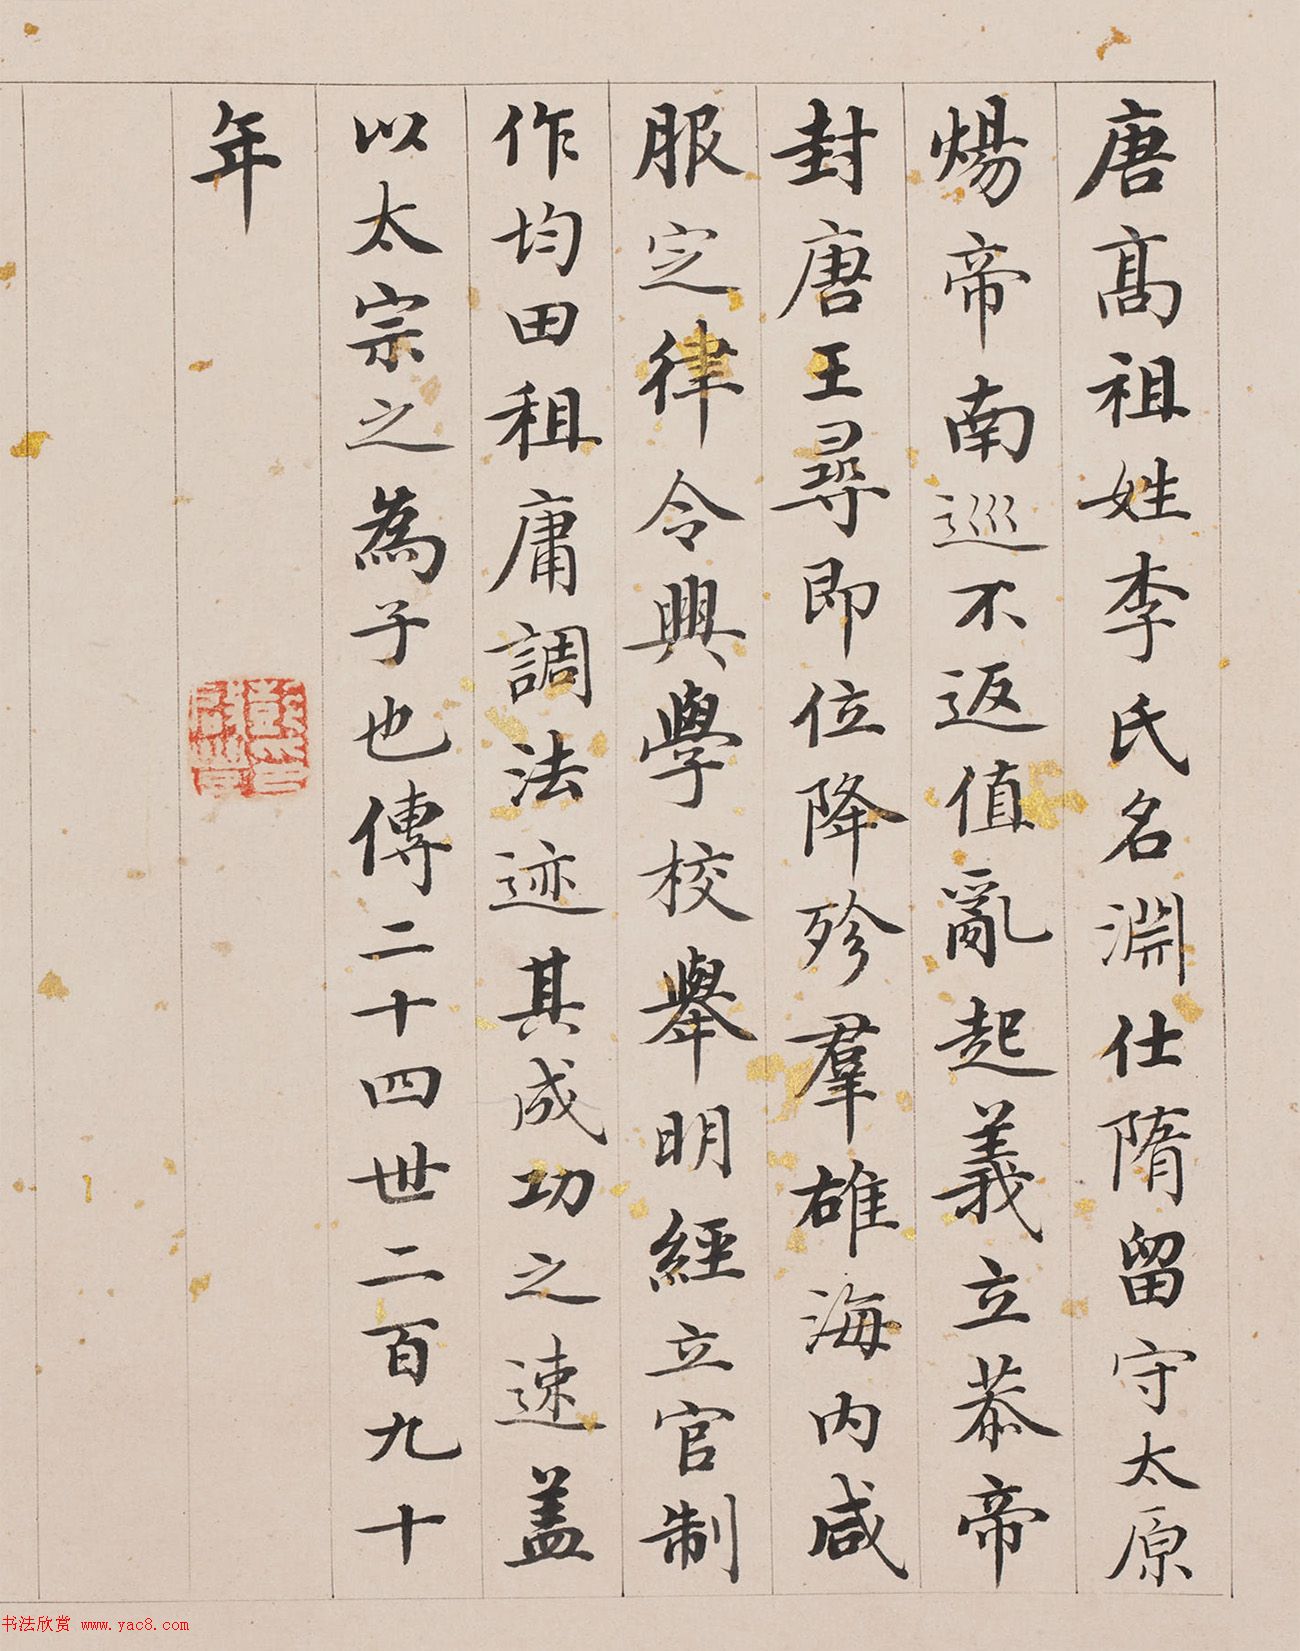 唐高祖姓李氏名淵仕隋留守太原
煬帝南巡不返值亂起義立恭帝
封唐王尋即位降殄羣雄海内咸
服定律令興學校舉明經立官制
作均田租庸調法迹其成功之速蓋
以太宗之為子也傳二十四世二百九十
年
书法欣赏 www.yac8.com